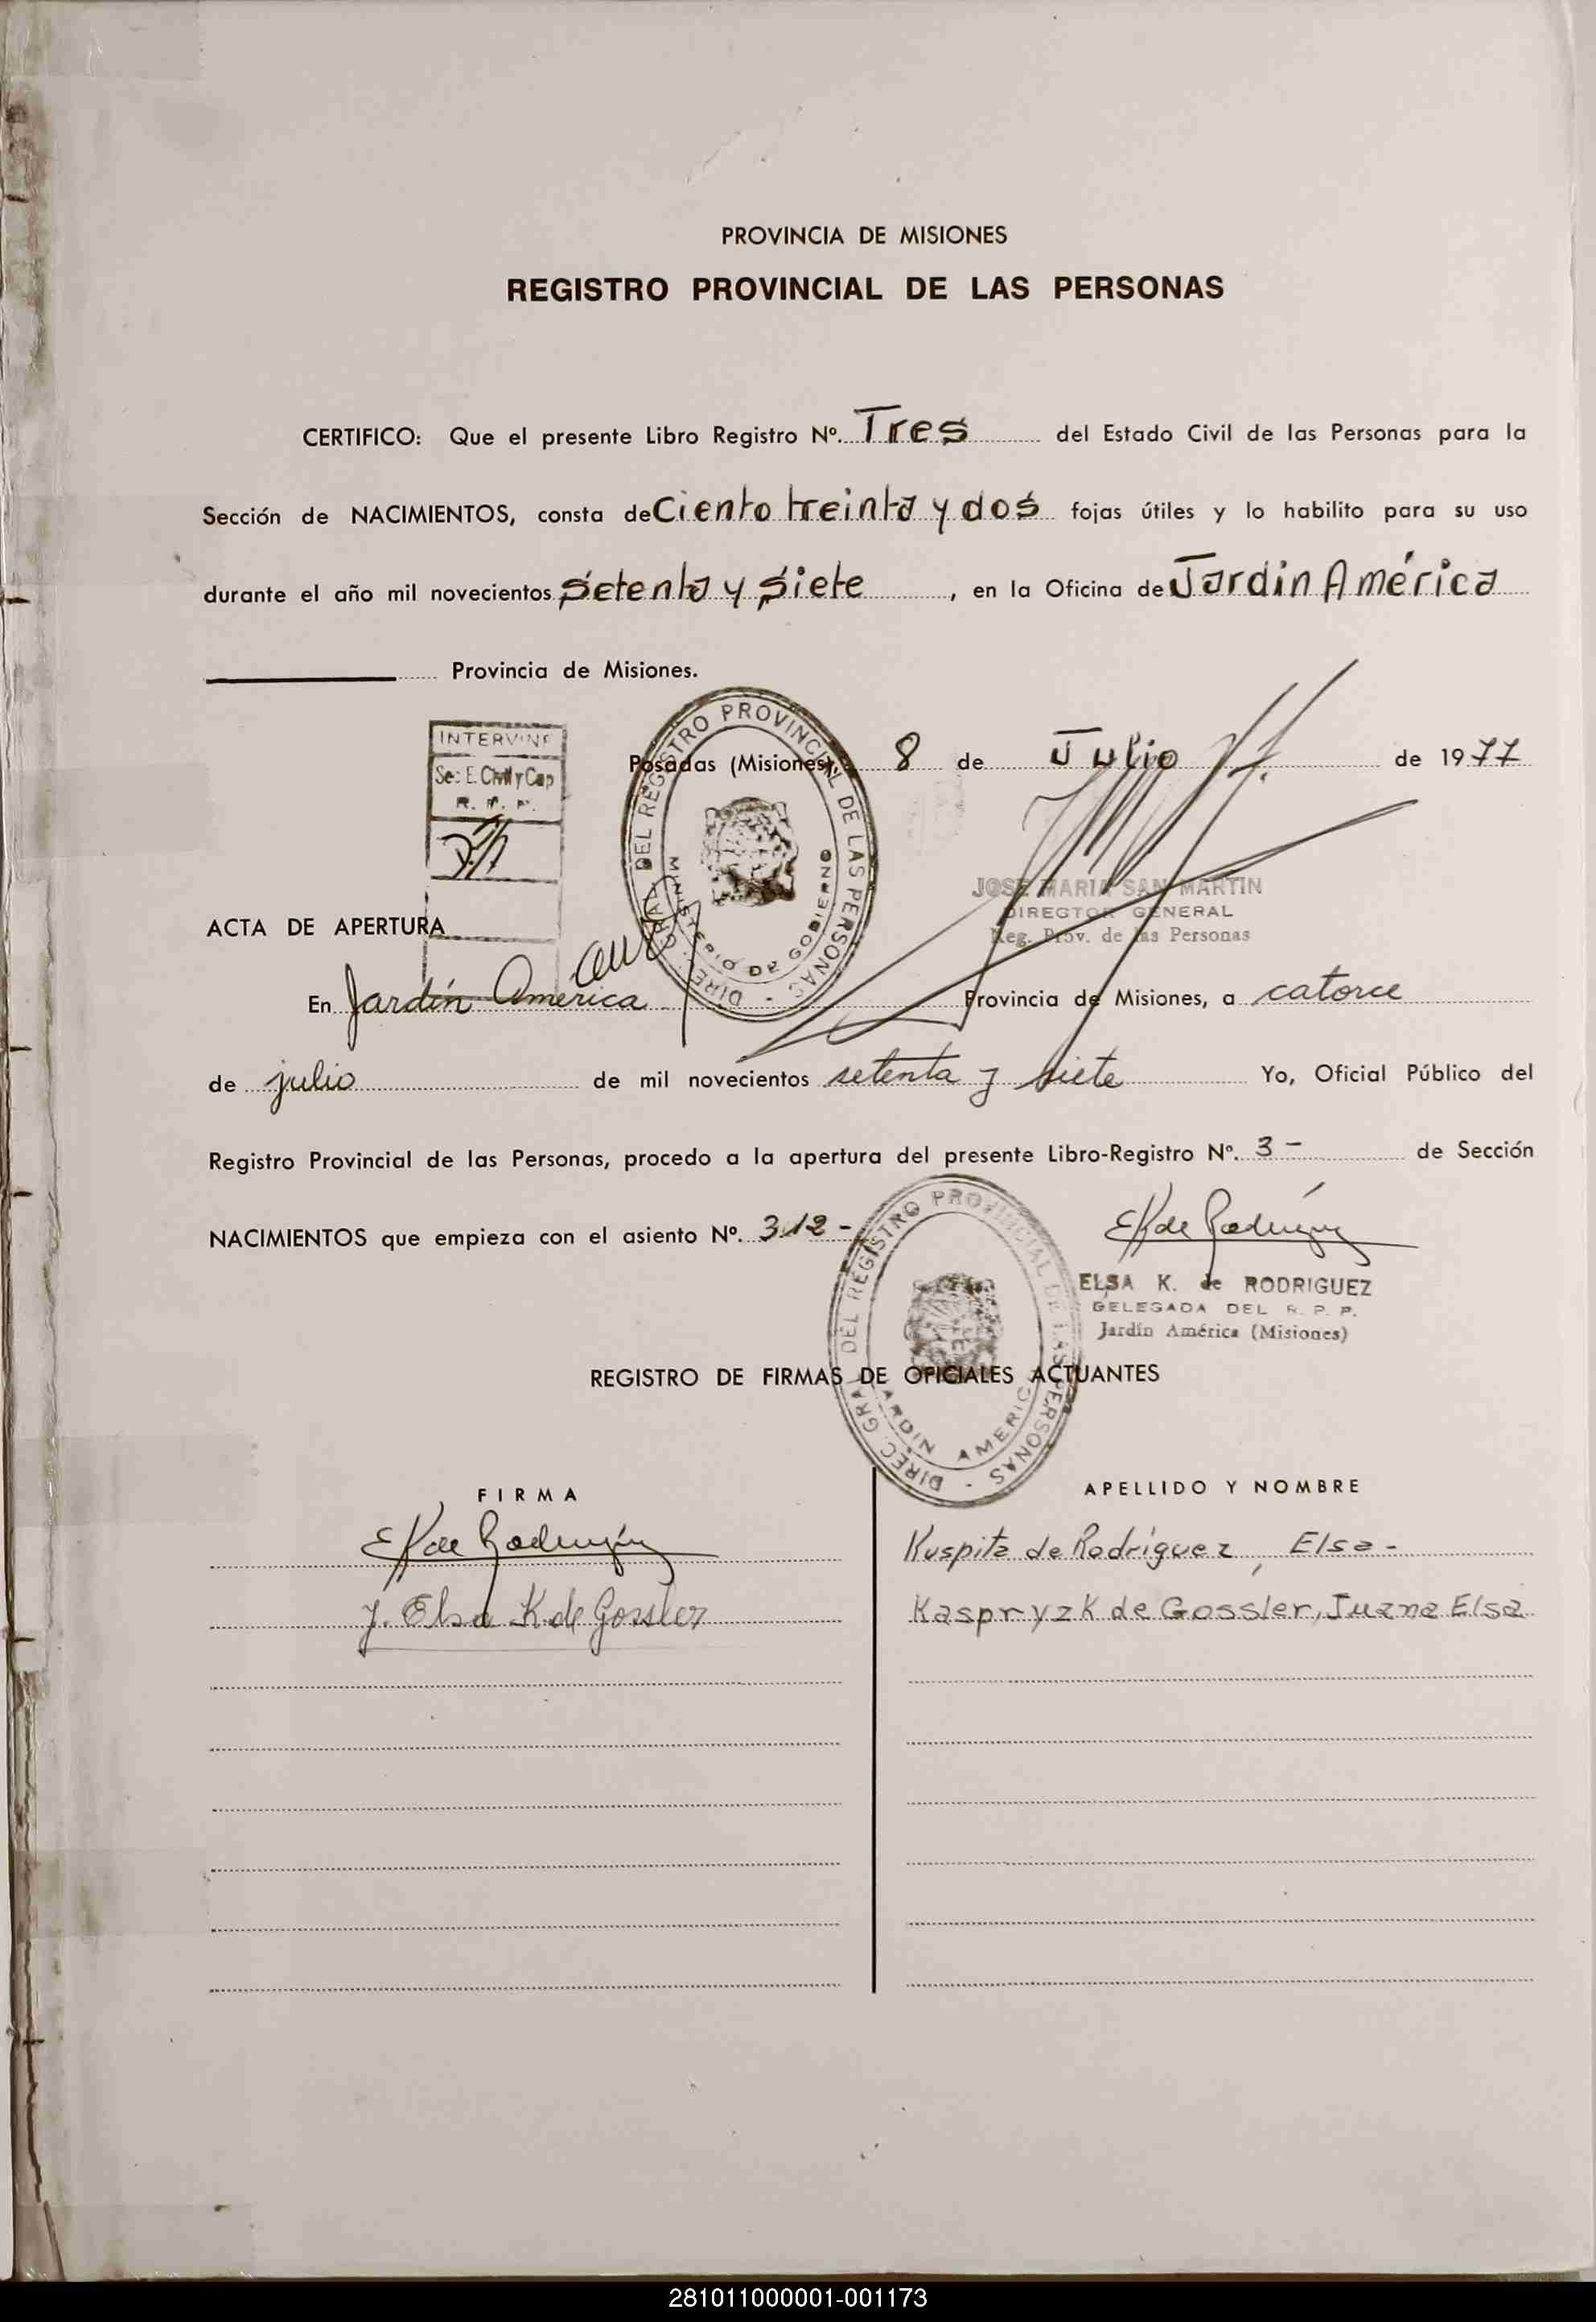 PROVINCIA DE MISIONES
REGISTRO PROVINCIAL DE LAS PERSONAS
CERTIFICO: Que el presente Libro Registro Nº. Tres del Estado Civil de las Personas para la
Sección de NACIMIENTOS, consta de Ciento treinta y dos fojas útiles y lo habilito para su uso
durante el año mil novecientos Setenta y Siete, en la Oficina de Jardin América
Provincia de Misiones.
INTERVINE
Sec E. Civil y Cap
R. P. P.
Posadas (Misiones), 8 de Julio de 1977
DIREC. GRAL. DEL REGISTRO PROVINCIAL DE LAS PERSONAS -
MINISTERIO DE GOBIERNO
JOSE MARIA SAN MARTIN
DIRECTOR GENERAL
Reg. Prov. de las Personas
ACTA DE APERTURA
En Jardín América Provincia de Misiones, a catorce
de julio de mil novecientos setenta y siete Yo, Oficial Público del
Registro Provincial de las Personas, procedo a la apertura del presente Libro-Registro Nº. 3 - de Sección
NACIMIENTOS que empieza con el asiento Nº. 312 -
EK de Rodríguez
ELSA K. de RODRIGUEZ
DELEGADA DEL R. P. P.
Jardín América (Misiones)
DIREC. GRAL. DEL REGISTRO PROVINCIAL DE LAS PERSONAS -
JARDIN AMERICA
REGISTRO DE FIRMAS DE OFICIALES ACTUANTES
FIRMA APELLIDO Y NOMBRE
EK de Rodríguez Kuspita de Rodríguez, Elsa -
J. Elsa K. de Gossler Kaspryzk de Gossler, Juana Elsa
281011000001-001173